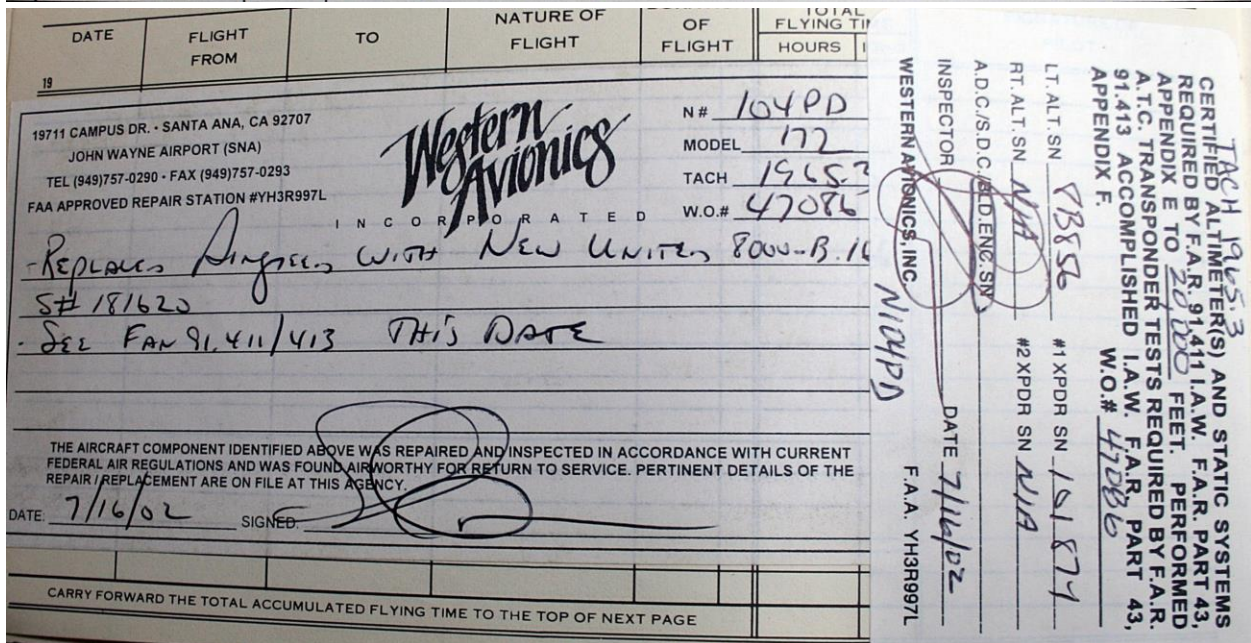 DATE
FLIGHT
FROM
TO
NATURE OF
FLIGHT
OF
FLIGHT
TOTAL
FLYING TI
HOURS
19
19711 CAMPUS DR. • SANTA ANA, CA 92707
JOHN WAYNE AIRPORT (SNA)
TEL (949)757-0290 • FAX (949)757-0293
FAA APPROVED REPAIR STATION #YH3R997L
Western
Avionics
INCORPORATED
N# 104PD
MODEL 172
TACH 1965.3
W.O.# 47086
WITH NEW UNITED 8000-B.
S# 181620
- SEE FAR 91.411/413 THIS DATE
THE AIRCRAFT COMPONENT IDENTIFIED ABOVE WAS REPAIRED AND INSPECTED IN ACCORDANCE WITH CURRENT
FEDERAL AIR REGULATIONS AND WAS FOUND AIRWORTHY FOR RETURN TO SERVICE. PERTINENT DETAILS OF THE
REPAIR / REPLACEMENT ARE ON FILE AT THIS AGENCY.
DATE: 7/16/02 SIGNED:
CARRY FORWARD THE TOTAL ACCUMULATED FLYING TIME TO THE TOP OF NEXT PAGE
TACH 1965.3
CERTIFIED ALTIMETER(S) AND STATIC SYSTEMS
REQUIRED BY F.A.R. 91.411 I.A.W. F.A.R. PART 43,
APPENDIX E TO 20,000 FEET. PERFORMED
A.T.C. TRANSPONDER TESTS REQUIRED BY F.A.R.
91.413 ACCOMPLISHED I.A.W. F.A.R. PART 43,
APPENDIX F. W.O.# 47086
LT. ALT. SN 7B856 #1 XPDR SN 101877
RT. ALT. SN N/A #2 XPDR SN N/A
A.D.C./S.D.C./BLD.ENC. SN
INSPECTOR DATE 7/16/02
WESTERN AVIONICS, INC. F.A.A. YH3R997L
N104PD